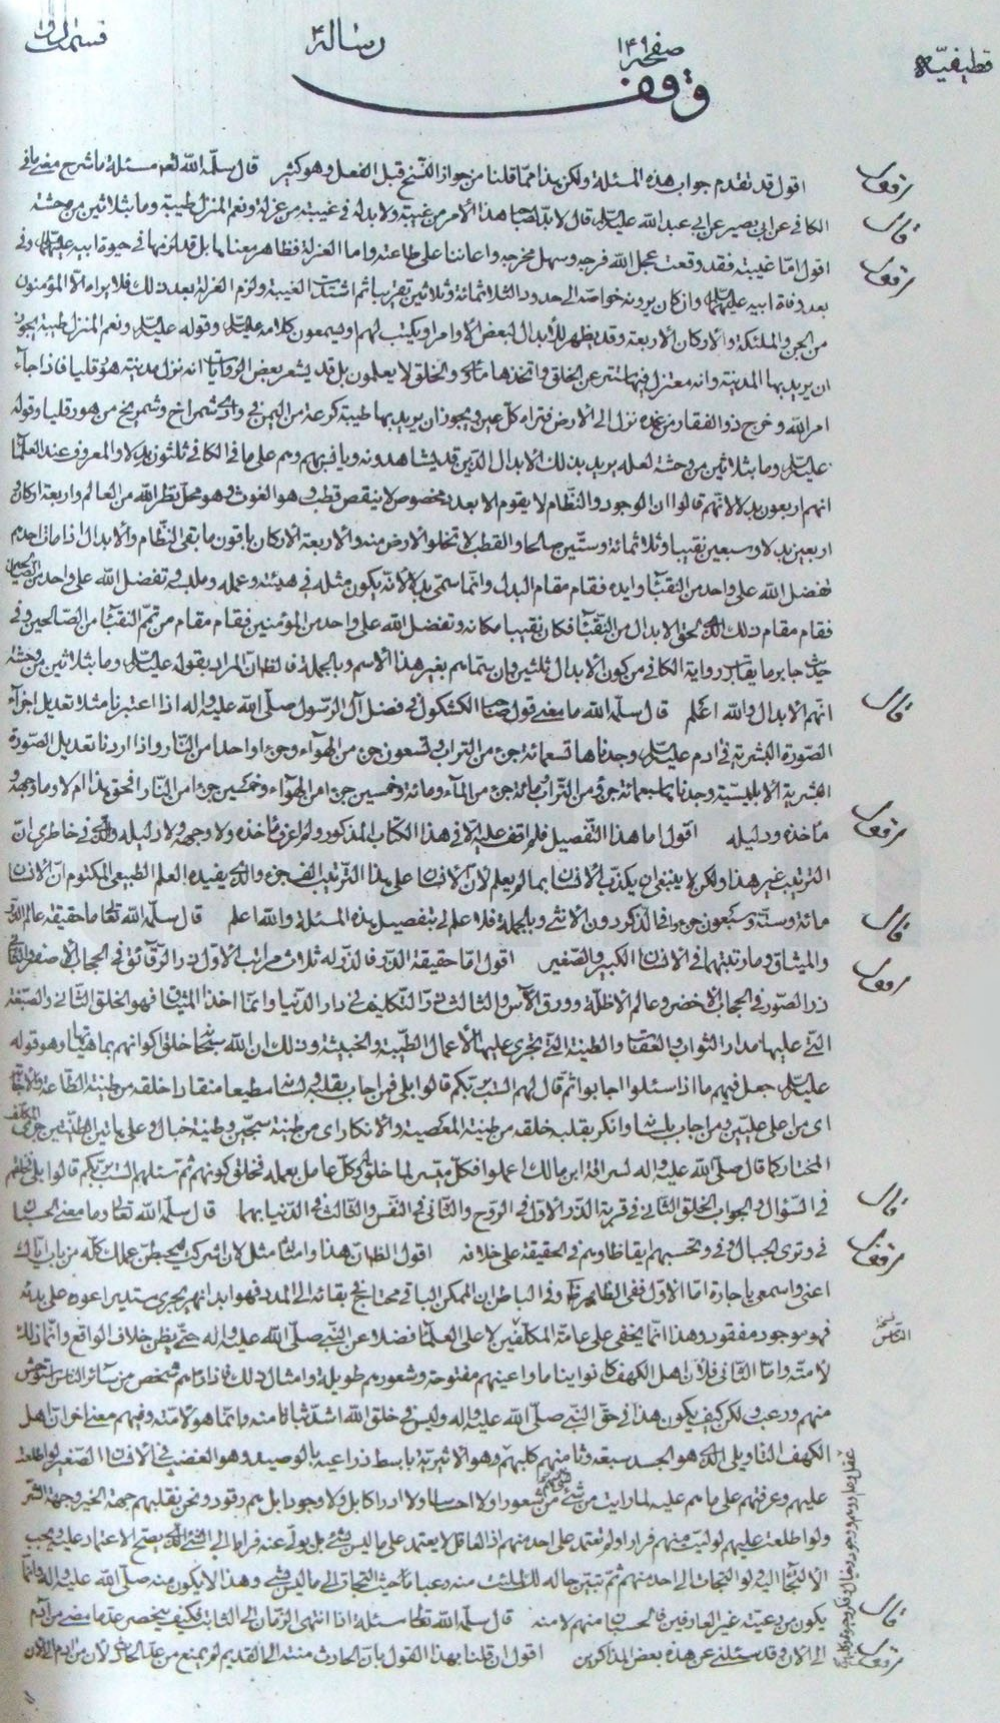 قطيفيّة
صفحه ١٤٩
رسالة
وقف
اقول قد تقدم جواب هذه المسئلة ولكن هذا مما قلنا من جواز النسخ قبل الفعل وهو كثير قال سلّمه الله تعالى مسئلة ما شرح معنى ما في
الكافي عن ابي بصير عن ابي عبد الله عليه السلام قال لا بد لصاحب هذا الأمر من غيبة ولا بد له في غيبته من عزلة ونعم المنزل طيبة وما بثلاثين من وحشة
اقول امّا غيبته فقد وقعت عجل الله فرجه وسهل مخرجه واعاننا على طاعته واما العزلة فظاهر معناها بل قد لزمها في حيوة ابيه عليهما السلام وفي
بعد وفاة ابيه عليهما السلام وان كان يرونه خواصه الى حدود الثلاثمائة وثلاثين تقريبا ثم اشتدت الغيبة ولزم العزلة بعد ذلك فلا يراه الا المؤمنون
من الجن والملئكة والأركان الأربعة وقد يظهر للأبدال لبعض الأوامر ويكتب لهم ويسمعون كلامه عليه السلام وقوله عليه السلام ونعم المنزل طيبة يجوز
ان يريد بها المدينة وانه معتزل فيها مستتر عن الخلق واتخذها والخلق لا يعلمون بل قد يشعر بعض الروايات انه نزل مدينته هورقليا فاذا جاء
امر الله وخرج ذو الفقار من غمده نزل الى الأرض فتراه كل عين ويجوز ان يريد بها طيبة كرعة من اليمن في وادي شمراخ وشمريخ من هورقليا وقوله
عليه السلام وما بثلاثين من وحشة لعله يريد بذلك الابدال الذين قد يشاهدونه ويأنس بهم وهم على ما في الكافي ثلثون بدلا والمعروف عند العلماء
انهم اربعون بدلا لانهم قالوا ان الوجود والنظام لا يقوم الا بعدد مخصوص لا ينقص قطب وهو الغوث وهو محل نظر الله من العالم واربعة اركان
اربعين بدلا وسبعين نقيبا وثلاثمائة وستين صالحا والقطب لا تخلو الأرض منه والأربعة الأركان باقون ما بقي النظام والأبدال اذا مات احدهم
تفضل الله على واحد من النقباء وايده فقام مقام البدل وانما سمّي بدلا لأنه يكون مثله في هيئته وعمله وتفضل الله على واحد من الصالحين
فقام مقام ذلك الذي لحق الابدال من النقباء فكان نقيبا مكانه وتفضل الله على واحد من المؤمنين فقام مقام من تمم النقباء من الصالحين وفي
حديث جابر ما يقارب رواية الكافي من كون الأبدال ثلثين وان سماهم بغير هذا الاسم وبالجملة فالظاهر ان المراد بقوله عليه السلام وما بثلاثين من وحشة
انهم الأبدال والله اعلم قال سلّمه الله ما معنى قول صاحب الكشكول في فضل آل الرسول صلى الله عليه واله اذا اعتبرنا مثلا تعديل اجزاء
الصورة البشرية في ادم عليه السلام وجدناها تسعمائة جزء من التراب وتسعون جزء من الهواء وجزء واحدا من النار واذا اردنا تعديل الصورة
البشرية الأبليسية وجدناها سبعمائة جزء من التراب ومائة جزء من الماء ومائة وخمسين جزء من الهواء وخمسين جزء من النار الحق هذا ام لا وما وجهه و
مأخذه ودليله اقول اما هذا التفصيل فلم اقف عليه الا في هذا الكتاب المذكور ولم اعرف مأخذه ولا وجهه ولا دليله والذي في خاطري ان
الترتيب غير هذا ولكن لا ينبغي ان يكذب الأنسان بما لم يعلم لأن الأنسان على هذا الترتيب والذي يفيده العلم الطبيعي المكتوم ان الأنسان
مائة وستة وسبعون جزء وافا الذكر دون الأنثى وبالجملة فلا علم لي بتفصيل هذه المسئلة والله اعلم قال سلّمه الله تعالى ما حقيقة عالم الذر
والميثاق وما رتبتهما في الأنسان الكبير والصغير اقول امّا حقيقة الذر فالذر له ثلاث مراتب الأول ذر الرقائق في الحجاب الأصفر والثاني
ذر الصور في الحجاب الأخضر وعالم الأظلة وورق الآس والثالث ذر التكليف في دار الدنيا وانما اخذ الميثاق فهو الخلق الثاني والصبغة
التي عليها مدار الثواب والعقاب والطينة التي تجري عليها الأعمال الطيبة والخبيثة وذلك ان الله سبحانه خلق اكوانهم بماهياتها وهو قوله
عليه السلام جعل فيهم ما اذا سئلوا اجابوا ثم قال لهم الست بربكم قالوا بلى فمن اجاب بقلبه ولسانه مطيعا منقادا خلقه من طينة الطاعة والأجابة
اي من اعلى عليين ومن اجاب بلسانه وانكر بقلبه خلقه من طينة المعصية والأنكار اي من طينة سجين وطينة خبال وعلى هاتين الطينتين جرى المكلف
المختار كما قال صلى الله عليه واله لسراقة ابن مالك اعملوا فكل ميسر لما خلق له وكل عامل بعمله فخلق كونهم ثم سئلهم الست بربكم قالوا بلى فخلقهم
في السؤال والجواب الخلق الثاني في قرية الذر الأول في الروح والثاني في النفس والثالث في الدنيا بهما قال سلّمه الله تعالى وما معنى الحسبان
في وترى الجبال وفي وتحسبهم ايقاظا وهم في الحقيقة على خلافه اقول الظاهر ان هذا وامثاله مثل لئن اشركت ليحبطن عملك كله من باب اياك
اعني واسمعي يا جارة امّا الأول ففي الظاهر وفي الباطن ان الممكن الباقي محتاج في بقائه الى المدد فهو ابدا نهر يجري مستدير اعوده على بدئه
فهو موجود مفقود وهذا انما يخفى على عامة المكلفين لا على العلماء فضلا عن النبي صلى الله عليه واله حتى يظن خلاف الواقع وانما ذلك
لأمته وامّا الثاني فلأن اهل الكهف كانوا نياما واعينهم مفتوحة وشعورهم طويلة وامثال ذلك فاذا رآهم شخص من سائر الناس استوحش
منهم ورعب ولكن كيف يكون هذا في حق النبي صلى الله عليه واله وليس في خلق الله اشد ثباتا منه وانما هو لأمته وفيهم معنى اخر ان اهل
الكهف التأويلي الذي هو الجسد سبعة وثامنهم كلبهم وهو الأثيرية باسط ذراعيه بالوصيد وهو الغضب في الأنسان الصغير لو اطلعت
عليهم وعرفتهم على ما هم عليه لما رايت من شيء من شعور ولا احساس ولا ادراكا بل ولا وجود بل هم رقود ونحن نقلبهم جهة الخير وجهة الشر
ولو اطلعت عليهم لوليت منهم فرارا ولم تعتمد على احد منهم اذ العاقل لا يعتمد على ما ليس بشيء بل يولي عنه فرارا الى الشيء الذي يصح الاعتماد عليه ويجب
الألتجاء اليه ولو التجأت الى احد منهم ثم تبين حاله لك لملئت منه رعبا حيث التجأت الى ما ليس بشيء وهذا لا يكون منه صلى الله عليه واله وانما
يكون من رعيته غير العارفين فالحسبان منهم لا منه قال سلّمه الله تعالى مسئلة اذا انتهى الزمان الى الثابت فكيف ينحصر عدّ ما مضى من آدم
الى الآن وقد سئلني عن هذه بعض المذاكرين اقول ان قلنا بهذا القول بان الحادث منته الى القديم لم يمنع من عدّ الحادث لأن من ادم الى الآن